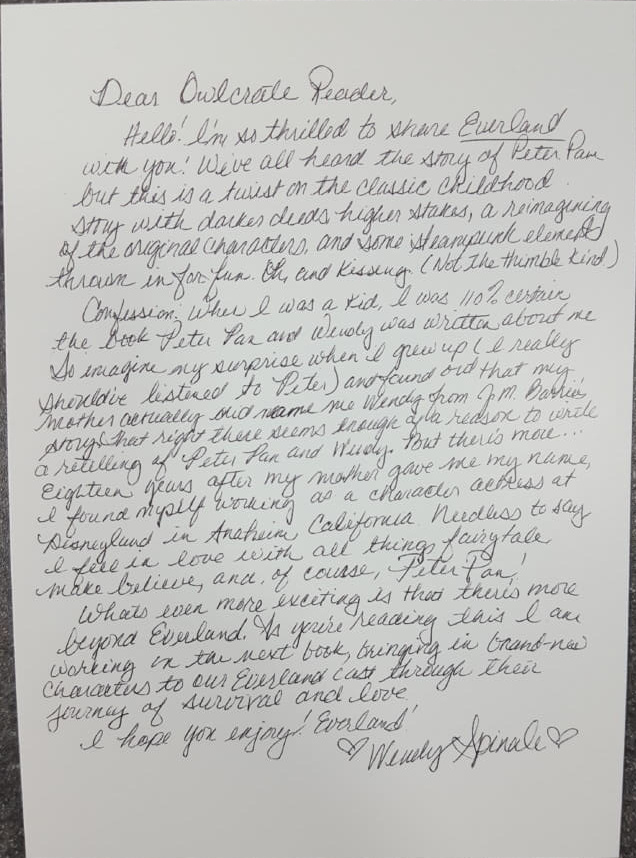 Dear Owlcrate Reader,
Hello! I'm so thrilled to share Everland
with you! We've all heard the story of Peter Pan
but this is a twist on the classic childhood
story with darker deeds, higher stakes, a reimagining
of the original characters, and some steampunk elements
thrown in for fun. Oh, and kissing. (Not the thimble kind)
Confession: When I was a kid, I was 110% certain
the book Peter Pan and Wendy was written about me
So imagine my surprise when I grew up (I really
should've listened to Peter) and found out that my
mother actually did name me Wendy from J.M. Barrie's
story! That right there seems enough of a reason to write
a retelling of Peter Pan and Wendy. But there's more...
Eighteen years after my mother gave me my name,
I found myself working as a character actress at
Disneyland in Anaheim California. Needless to say
I fell in love with all things fairytale,
make believe, and, of course, Peter Pan!
Whats even more exciting is that there's more
beyond Everland. As you're reading this I am
working on the next book, bringing in brand-new
characters to our Everland cast through their
journey of survival and love
I hope you enjoy! Everland!
♡ Wendy Spinale ♡